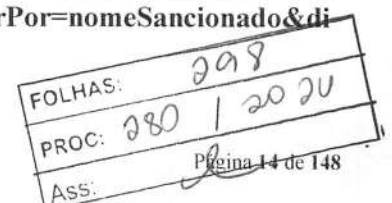 rPor=nomeSancionado&di
FOLHAS: 298
PROC: 280 / 2020
Página 14 de 148
Ass: